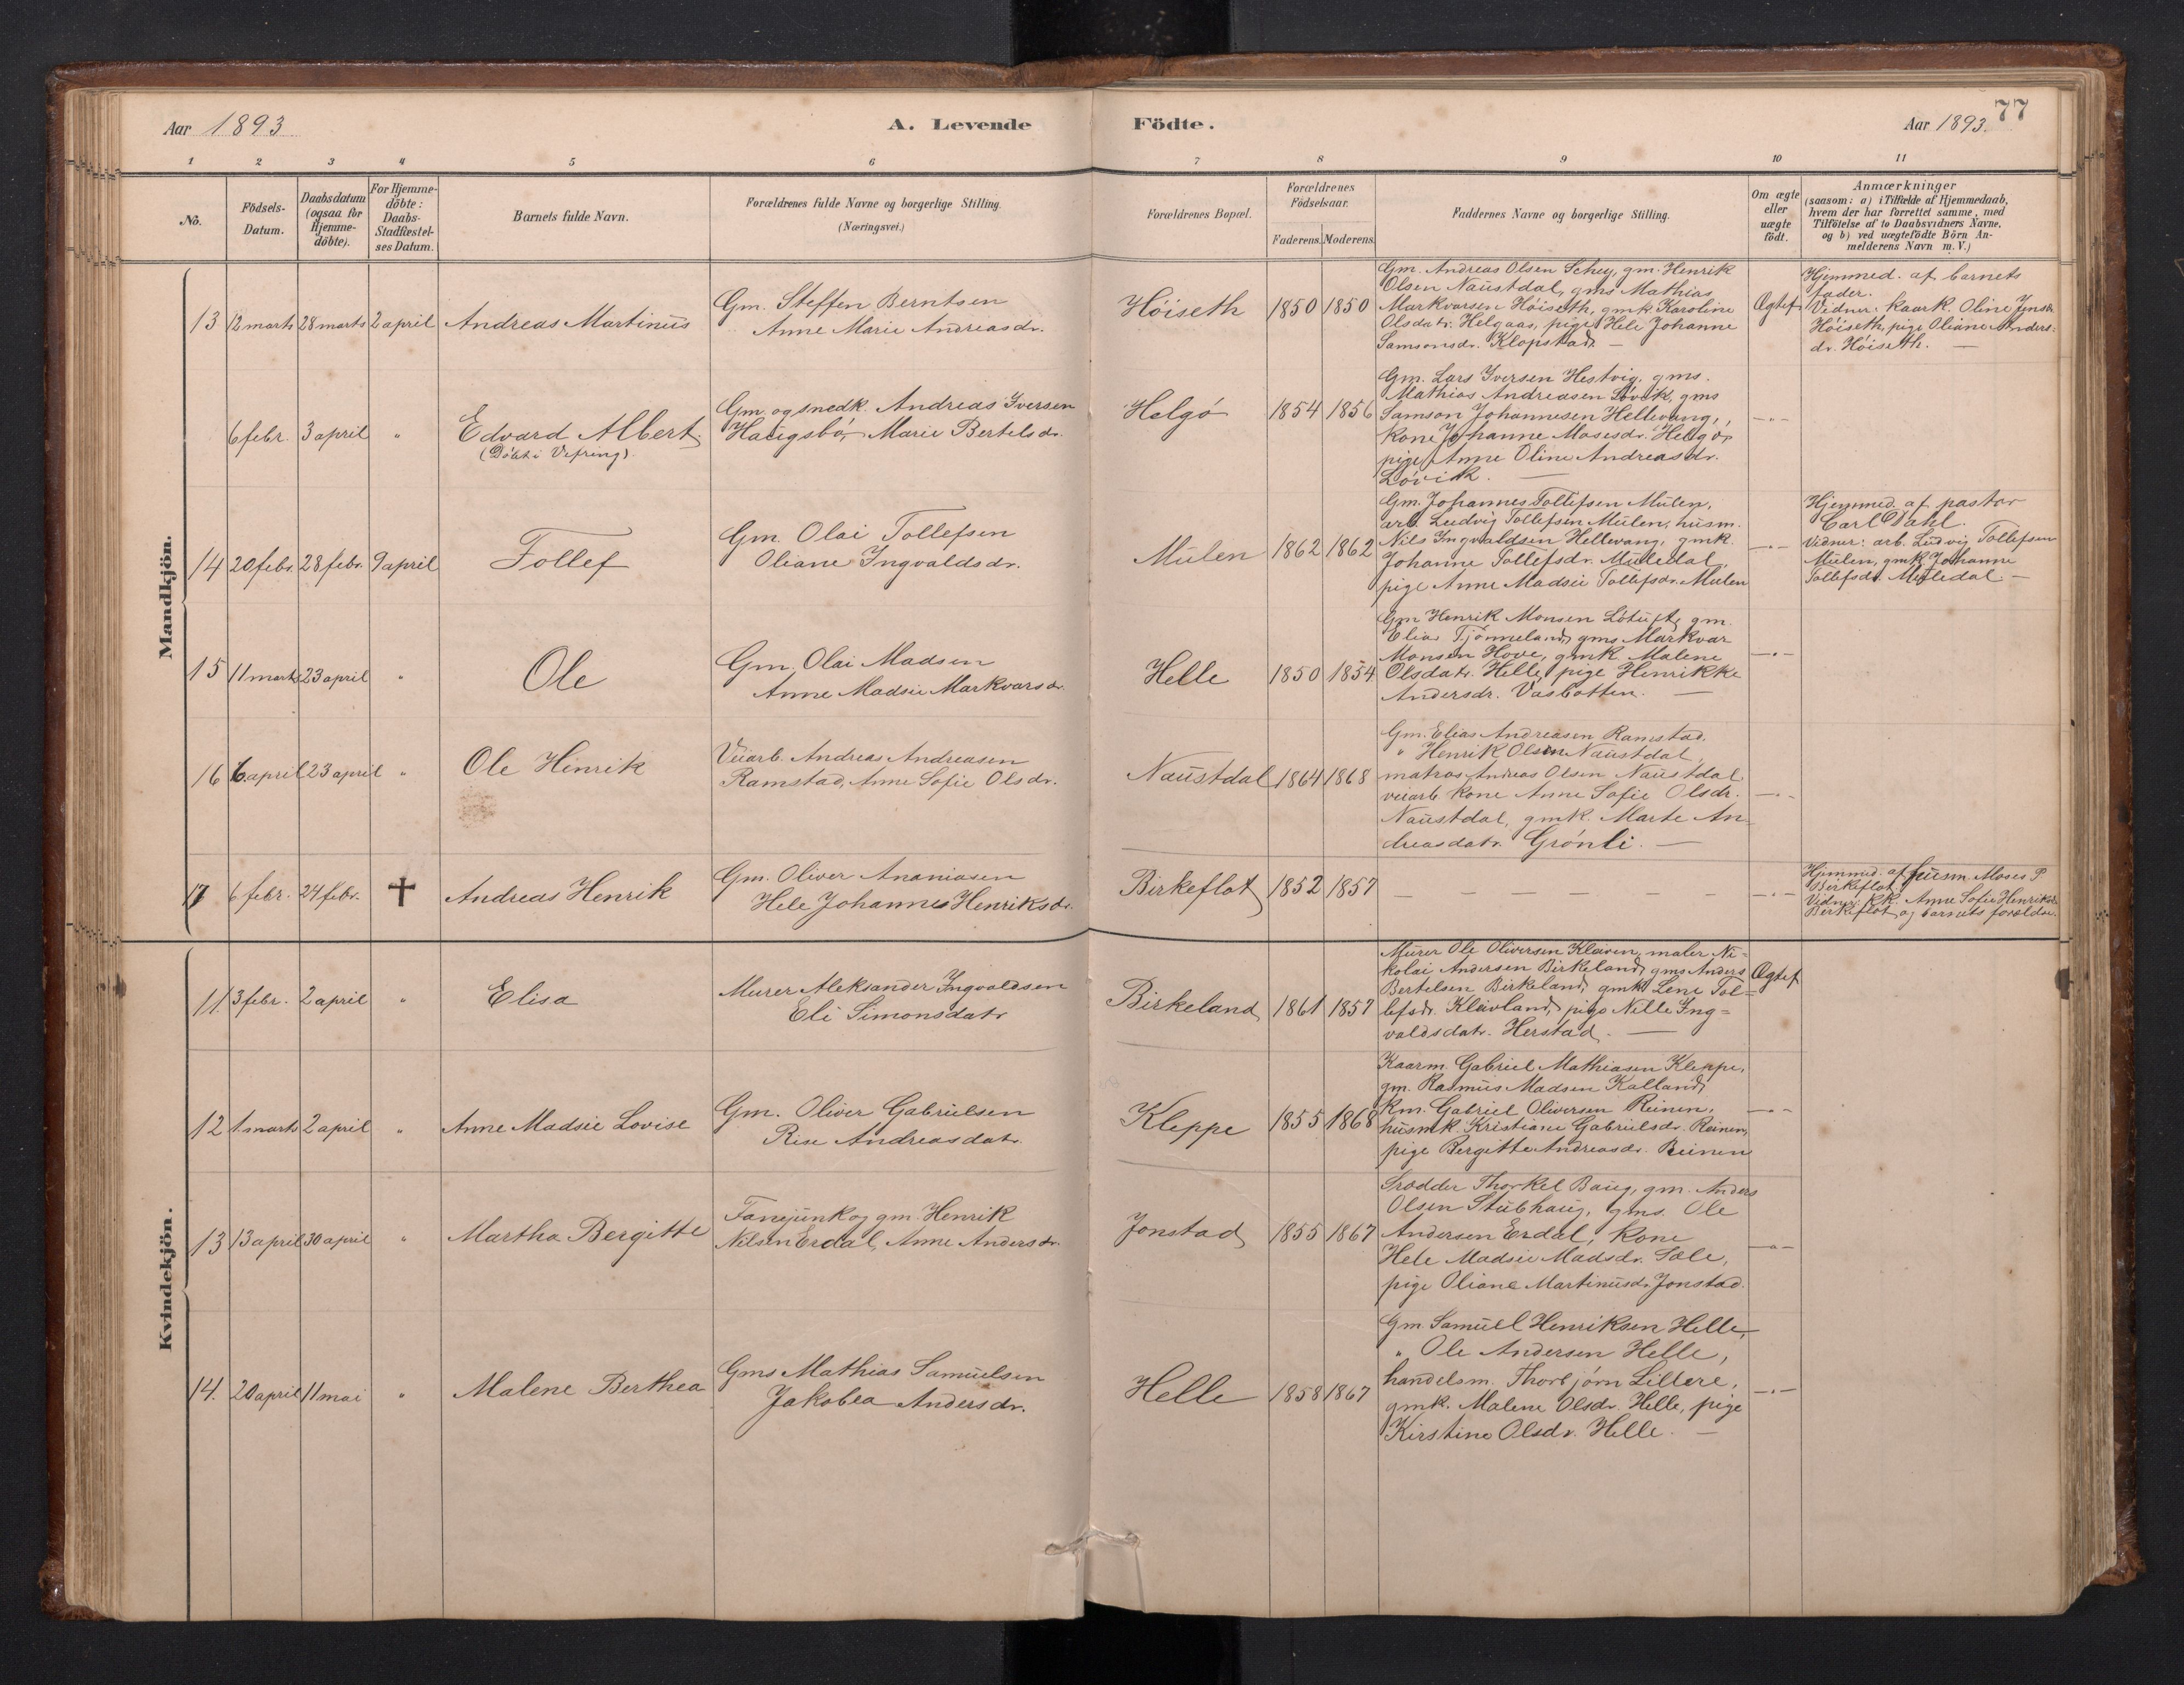 77
Aar 1893
A. Levende Födte.
Aar 1893.
1 2 3 4 5 6 7 8 9 10 11
No.
Födsels-Datum.
Daabsdatum (ogsaa for Hjemme-döbte).
For Hjemme-döbte: Daabs-Stadfæstel-ses Datum.
Barnets fulde Navn.
Forældrenes fulde Navne og borgerlige Stilling.
(Næringsvei.)
Forældrenes Bopæl.
Forældrenes Födselsaar.
Faderens. Moderens.
Faddernes Navne og borgerlige Stilling.
Om ægte eller uægte födt.
Anmærkninger
(saasom: a) i Tilfælde af Hjemmedaab,
hvem der har forrettet samme, med
Tilföielse af to Daabsvidners Navne,
og b) ved uægtefödte Börn An-
melderens Navn m. V.)
Mandkjön.
13 12 marts 28 marts 2 april Andreas Martinus
Gm. Steffen Berntsen
Anne Marie Andreasdr.
Höiseth 1850 1850
Gm. Andreas Olsen Schey, gm. Henrik
Olsen Naustdal, gms Mathias
Markvarsen Höiseth, gmk. Karoline
Olsdatr. Helgaas, pige Hele Johanne
Samsonsdr. Klopstad. —
Ægtef.
Hjemmed. af barnets
fader.
Vidner: kaark. Oline Jensdr.
Höiseth, pige Oliane Anders-
dr. Höiseth. —
6 febr. 3 april " Edvard Albert.
(Döbt i Vefring)
Gm. og snedk. Andreas Iversen
Haugsbö, Marie Bertelsdr.
Helgö 1854 1856
Gm. Lars Iversen Hestvig, gms.
Mathias Andreasen Lövik, gms
Samson Johannesen Hellevang,
Kone Johanne Mosesdr. Helgö,
pige Anne Oline Andreasdr.
Lövik. —
—"—
14 20 febr. 28 febr. 9 april Tollef
Gm. Olai Tollefsen
Oliane Ingvaldsdr.
Mulen 1862 1862
Gm. Johannes Tollefsen Mulen,
arb. Ludvig Tollefsen Mulen, husm.
Nils Ingvaldsen Hellevang, gmk.
Johanne Tollefsdr. Muledal,
pige Anne Madsie Tollefsdr. Mulen
—"—
Hjemmed. af pastor
Carl Dahl.
Vidner: arb. Ludvig Tollefsen
Mulen, gmk. Johanne
Tollefsdr. Muledal —
15 11 marts 23 april " Ole
Gm. Olai Madsen
Anne Madsie Markvarsdr.
Helle 1850 1854
Gm Henrik Monsen Lötuft, gm.
Elias Tjönneland, gms Markvar
Monsen Hove, gmk. Malene
Olsdatr. Helle, pige Henrikke
Andersdr. Vasbotten. —
—"—
16 6 april 23 april " Ole Henrik
Veiarb. Andreas Andreasen
Ramstad, Anne Sofie Olsdr.
Naustdal 1864 1868
Gm. Elias Andreasen Ramstad.
" Henrik Olsen Naustdal,
matros Andreas Olsen Naustdal
veiarb. kone Anne Sofie Olsdr.
Naustdal, gmk. Marte An-
dreasdatr. Grönli. —
—"—
17 6 febr. 24 febr. † Andreas Henrik
Gm. Oliver Ananiasen
Hele Johanne Henriksdr.
Birkeflot 1852 1857
— — — — — — —
—"—
Hjemmed. af husm. Moses P
Birkeflot.
Vidner: kk. Anne Sofie Henriksdr.
Birkeflot og barnets forældre.
Kvindekjön.
11. 3 febr. 2 april " Elisa
Murer Aleksander Ingvaldsen
Eli Simonsdatr
Birkeland 1861 1857
Murer Ole Oliversen Kleiven, maler Ni-
kolai Andersen Birkeland, gms Anders
Bertelsen Birkeland, gmk Lene Tol-
lefsdr. Kleivland, pige Nille Ing-
valdsdatr. Herstad. —
Ægtef
12 1. marts 2 april " Anne Madsie Lovise
Gm. Oliver Gabrielsen
Rise Andreasdatr.
Kleppe 1855 1868
Kaarm. Gabriel Mathiasen Kleppe,
gm. Rasmus Madsen Kalland,
Km. Gabriel Oliversen Reinen,
husmk. Kristiane Gabrielsdr. Reinen,
pige Bergitte Andreasdr. Reinen
—"—
13 13 april 30 april " Martha Bergitte
Fanejunk og gm. Henrik
Nilsen Erdal, Anne Andersdr.
Jonstad 1855 1867
Skrædder Thorkel Baug, gm. Anders
Olsen Stubhaug, gms. Ole
Andersen Erdal, kone
Hele Madsie Madsdr. Sæle,
pige Oliane Martinusdr. Jonstad.
—"—
14. 20 april 11 mai " Malene Berthea
Gms Mathias Samuelsen
Jakobea Andersdr.
Helle 1858 1867
Gm. Samuel Henriksen Helle,
" Ole Andersen Helle,
handelsm. Thorbjörn Lillere,
gmk. Malene Olsdr. Helle, pige
Kirstine Olsdr. Helle. —
—"—